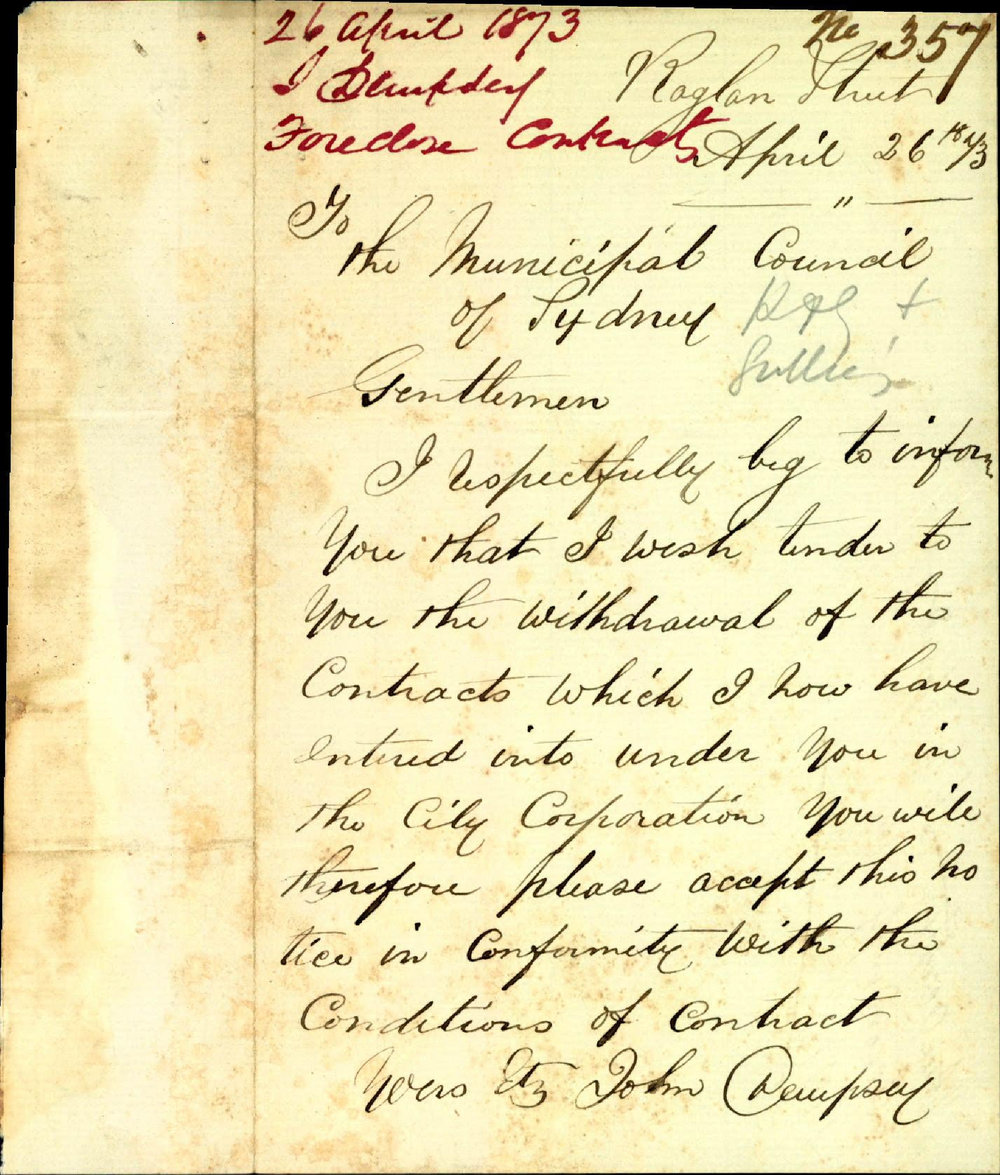 26 April 1873
No 357
J Dempsey
Raglan Street
Foreclose Contracts
April 26 1873
"
To
the Municipal Council
of Sydney
Gentlemen
I respectfully beg to inform
You that I wish tender to
You the Withdrawal of the
Contracts which I now have
entered into under You in
the City Corporation You will
therefore please accept this no
tice in Conformity With the
Conditions of Contract
Yours Etc John Dempsey